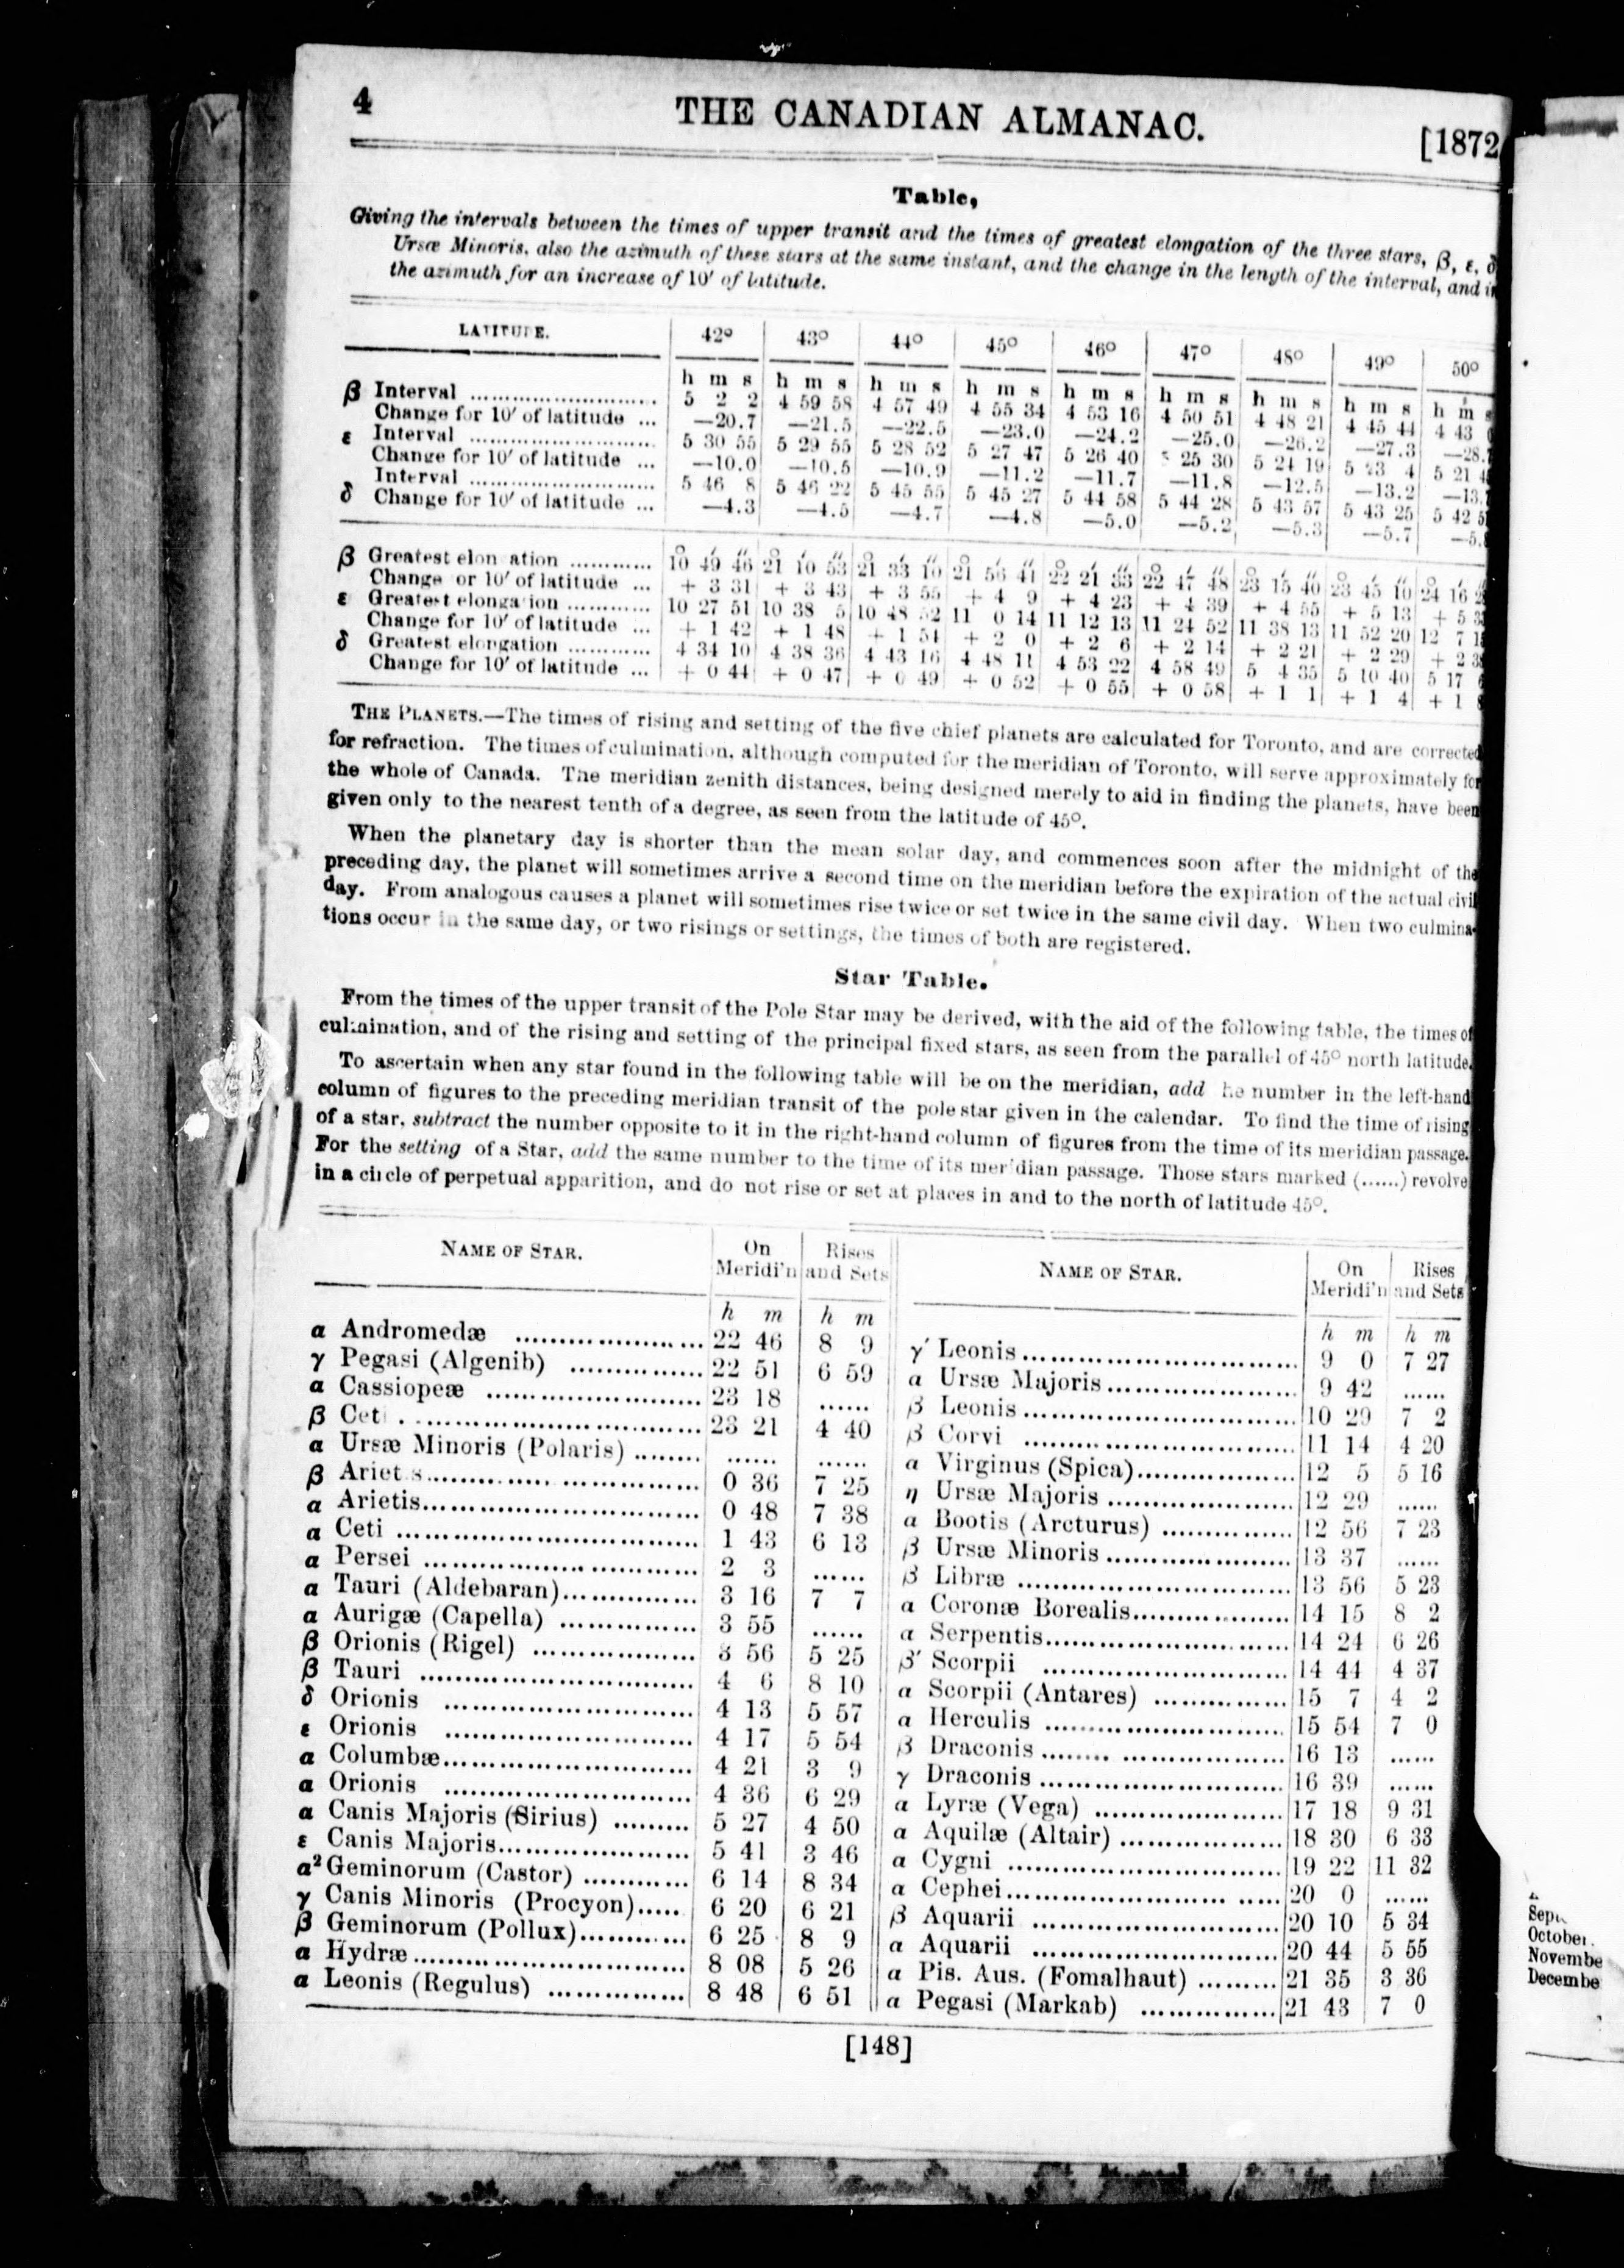 4 THE CANADIAN ALMANAC. [1872
Table,
Giving the intervals between the times of upper transit and the times of greatest elongation of the three stars, β, ε, δ
Ursæ Minoris, also the azimuth of these stars at the same instant, and the change in the length of the interval, and in
the azimuth for an increase of 10′ of latitude.
LATITUDE. 42° 43° 44° 45° 46° 47° 48° 49° 50°
h m s h m s h m s h m s h m s h m s h m s h m s h m s
β Interval ........................... 5 2 2 4 59 58 4 57 49 4 55 34 4 53 16 4 50 51 4 48 21 4 45 44 4 43
Change for 10′ of latitude ... —20.7 —21.5 —22.5 —23.0 —24.2 —25.0 —26.2 —27.3 —28.
ε Interval ........................... 5 30 55 5 29 55 5 28 52 5 27 47 5 26 40 5 25 30 5 24 19 5 23 4 5 21
Change for 10′ of latitude ... —10.0 —10.5 —10.9 —11.2 —11.7 —11.8 —12.5 —13.2 —13.
δ Interval ........................... 5 46 8 5 46 22 5 45 55 5 45 27 5 44 58 5 44 28 5 43 57 5 43 25 5 42
Change for 10′ of latitude ... —4.3 —4.5 —4.7 —4.8 —5.0 —5.2 —5.3 —5.7 —5.
° ′ ″ ° ′ ″ ° ′ ″ ° ′ ″ ° ′ ″ ° ′ ″ ° ′ ″ ° ′ ″ ° ′
β Greatest elon ation ............ 10 49 46 21 10 53 21 33 10 21 56 41 22 21 33 22 47 48 23 15 40 23 45 10 24 16
Change or 10′ of latitude ... + 3 31 + 3 43 + 3 55 + 4 9 + 4 23 + 4 39 + 4 55 + 5 13 + 5
ε Greatest elonga ion ............ 10 27 51 10 38 5 10 48 52 11 0 14 11 12 13 11 24 52 11 38 13 11 52 20 12 7
Change for 10′ of latitude ... + 1 42 + 1 48 + 1 54 + 2 0 + 2 6 + 2 14 + 2 21 + 2 29 + 2
δ Greatest elongation ............ 4 34 10 4 38 36 4 43 16 4 48 11 4 53 22 4 58 49 5 4 35 5 10 40 5 17
Change for 10′ of latitude ... + 0 44 + 0 47 + 0 49 + 0 52 + 0 55 + 0 58 + 1 1 + 1 4 + 1
THE PLANETS.—The times of rising and setting of the five chief planets are calculated for Toronto, and are corrected
for refraction. The times of culmination, although computed for the meridian of Toronto, will serve approximately for
the whole of Canada. The meridian zenith distances, being designed merely to aid in finding the planets, have been
given only to the nearest tenth of a degree, as seen from the latitude of 45°.
When the planetary day is shorter than the mean solar day, and commences soon after the midnight of the
preceding day, the planet will sometimes arrive a second time on the meridian before the expiration of the actual civil
day. From analogous causes a planet will sometimes rise twice or set twice in the same civil day. When two culmina-
tions occur in the same day, or two risings or settings, the times of both are registered.
Star Table.
From the times of the upper transit of the Pole Star may be derived, with the aid of the following table, the times of
culmination, and of the rising and setting of the principal fixed stars, as seen from the parallel of 45° north latitude.
To ascertain when any star found in the following table will be on the meridian, add he number in the left-hand
column of figures to the preceding meridian transit of the pole star given in the calendar. To find the time of rising
of a star, subtract the number opposite to it in the right-hand column of figures from the time of its meridian passage.
For the setting of a Star, add the same number to the time of its meridian passage. Those stars marked (......) revolve
in a circle of perpetual apparition, and do not rise or set at places in and to the north of latitude 45°.
NAME OF STAR. On Meridi'n Rises and Sets
h m h m
α Andromedæ ..................... 22 46 8 9
γ Pegasi (Algenib) ............... 22 51 6 59
α Cassiopeæ ........................ 23 18 ......
β Cet . .................................. 23 21 4 40
α Ursæ Minoris (Polaris) ........ ...... ......
β Ariet s............................... 0 36 7 25
α Arietis............................... 0 48 7 38
α Ceti .................................. 1 43 6 13
α Persei ............................... 2 3 ......
α Tauri (Aldebaran)............... 3 16 7 7
α Aurigæ (Capella) ............... 3 55 ......
β Orionis (Rigel) .................. 3 56 5 25
β Tauri ............................... 4 6 8 10
δ Orionis ............................ 4 13 5 57
ε Orionis ............................ 4 17 5 54
α Columbæ............................ 4 21 3 9
α Orionis ............................ 4 36 6 29
α Canis Majoris (Sirius) ......... 5 27 4 50
ε Canis Majoris..................... 5 41 3 46
α² Geminorum (Castor) ............ 6 14 8 34
γ Canis Minoris (Procyon)..... 6 20 6 21
β Geminorum (Pollux)............ 6 25 8 9
α Hydræ............................... 8 08 5 26
α Leonis (Regulus) ............... 8 48 6 51
NAME OF STAR. On Meridi'n Rises and Sets
h m h m
γ′ Leonis............................... 9 0 7 27
α Ursæ Majoris..................... 9 42 ......
β Leonis............................... 10 29 7 2
β Corvi ............................... 11 14 4 20
α Virginus (Spica).................. 12 5 5 16
η Ursæ Majoris ..................... 12 29 ......
α Bootis (Arcturus) ............... 12 56 7 23
β Ursæ Minoris..................... 13 37 ......
β Libræ ............................... 13 56 5 23
α Coronæ Borealis.................. 14 15 8 2
α Serpentis............................ 14 24 6 26
β′ Scorpii ............................ 14 44 4 37
α Scorpii (Antares) ............... 15 7 4 2
α Herculis ............................ 15 54 7 0
β Draconis............................ 16 13 ......
γ Draconis............................ 16 39 ......
α Lyræ (Vega) ..................... 17 18 9 31
α Aquilæ (Altair) .................. 18 30 6 33
α Cygni ............................... 19 22 11 32
α Cephei............................... 20 0 ......
β Aquarii ............................ 20 10 5 34
α Aquarii ............................ 20 44 5 55
α Pis. Aus. (Fomalhaut) ......... 21 35 3 36
α Pegasi (Markab) ............... 21 43 7 0
[148]
Sept
October.
Novembe
Decembe